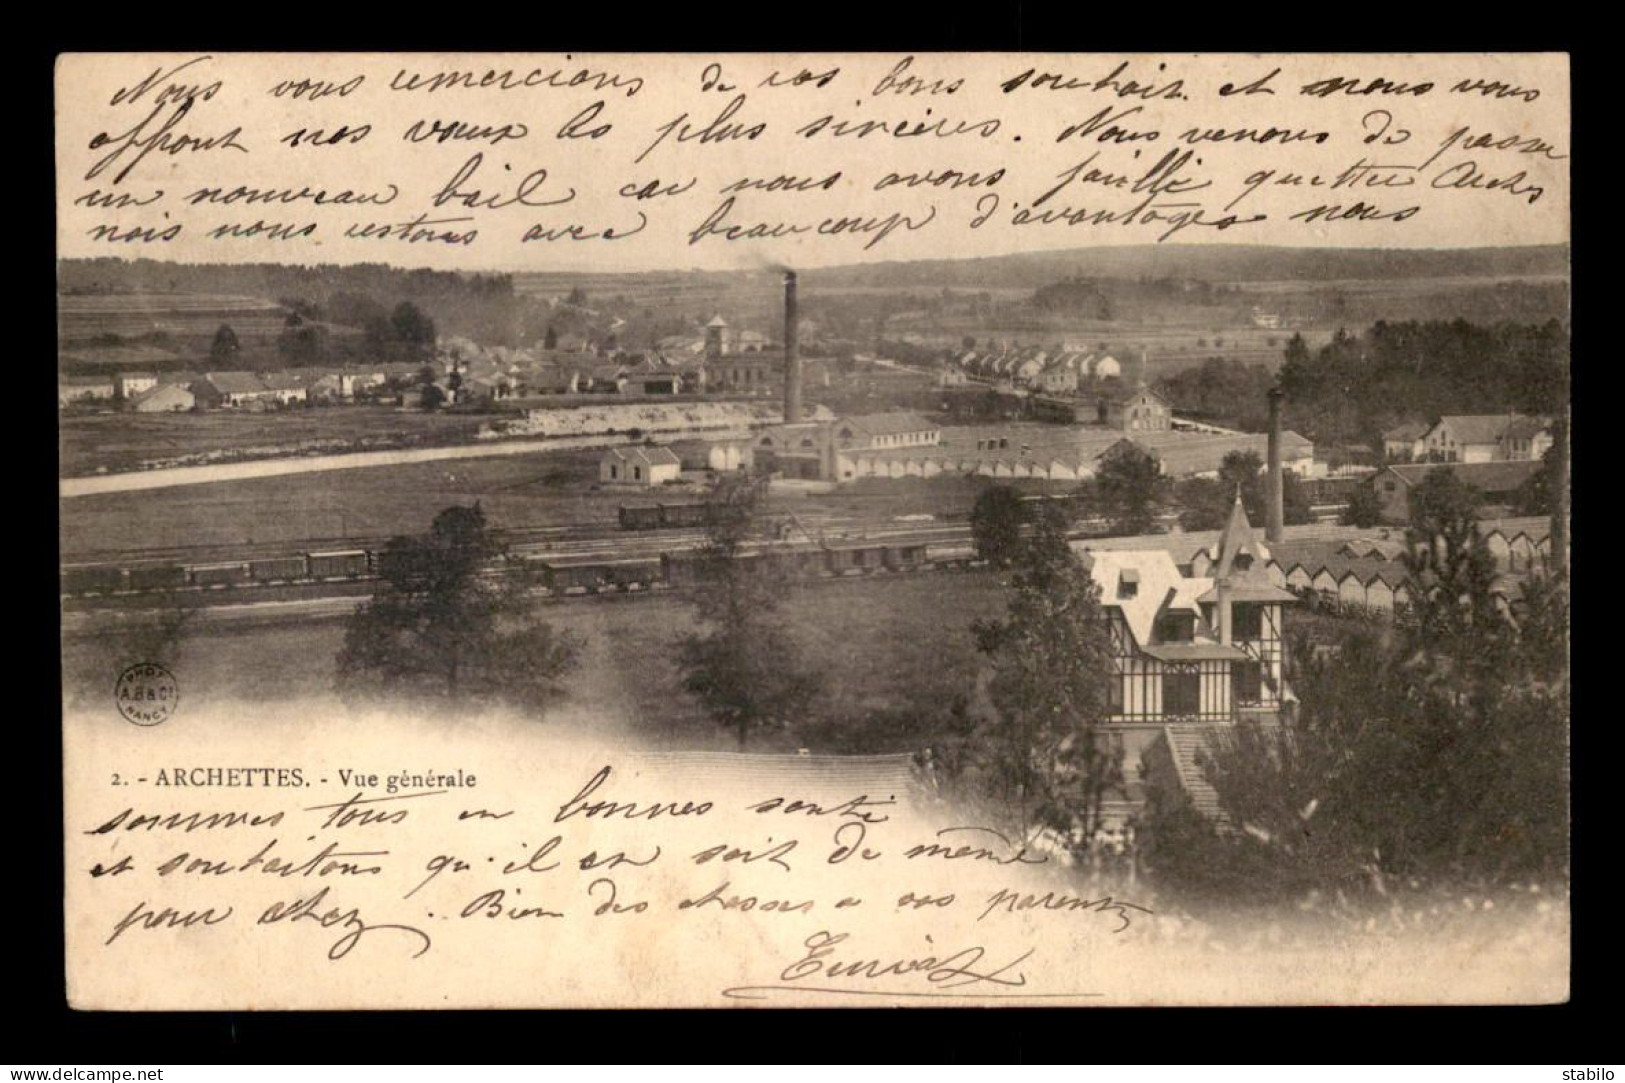 Nous vous remercions de vos bons souhait. et nous vous
offront nos vœux les plus sincères. Nous venons de passer
un nouveau bail car nous avons failli quetter Arches
nois nous restons avec beaucoup d'avantages nous
PHOT
A.B & Cie
NANCY
2. - ARCHETTES. - Vue générale
sommes tous en bonnes santé
et souhaitons qu'il en soit de même
pour chez. Bien des choses a vos parents
www.delcampe.net
stabilo